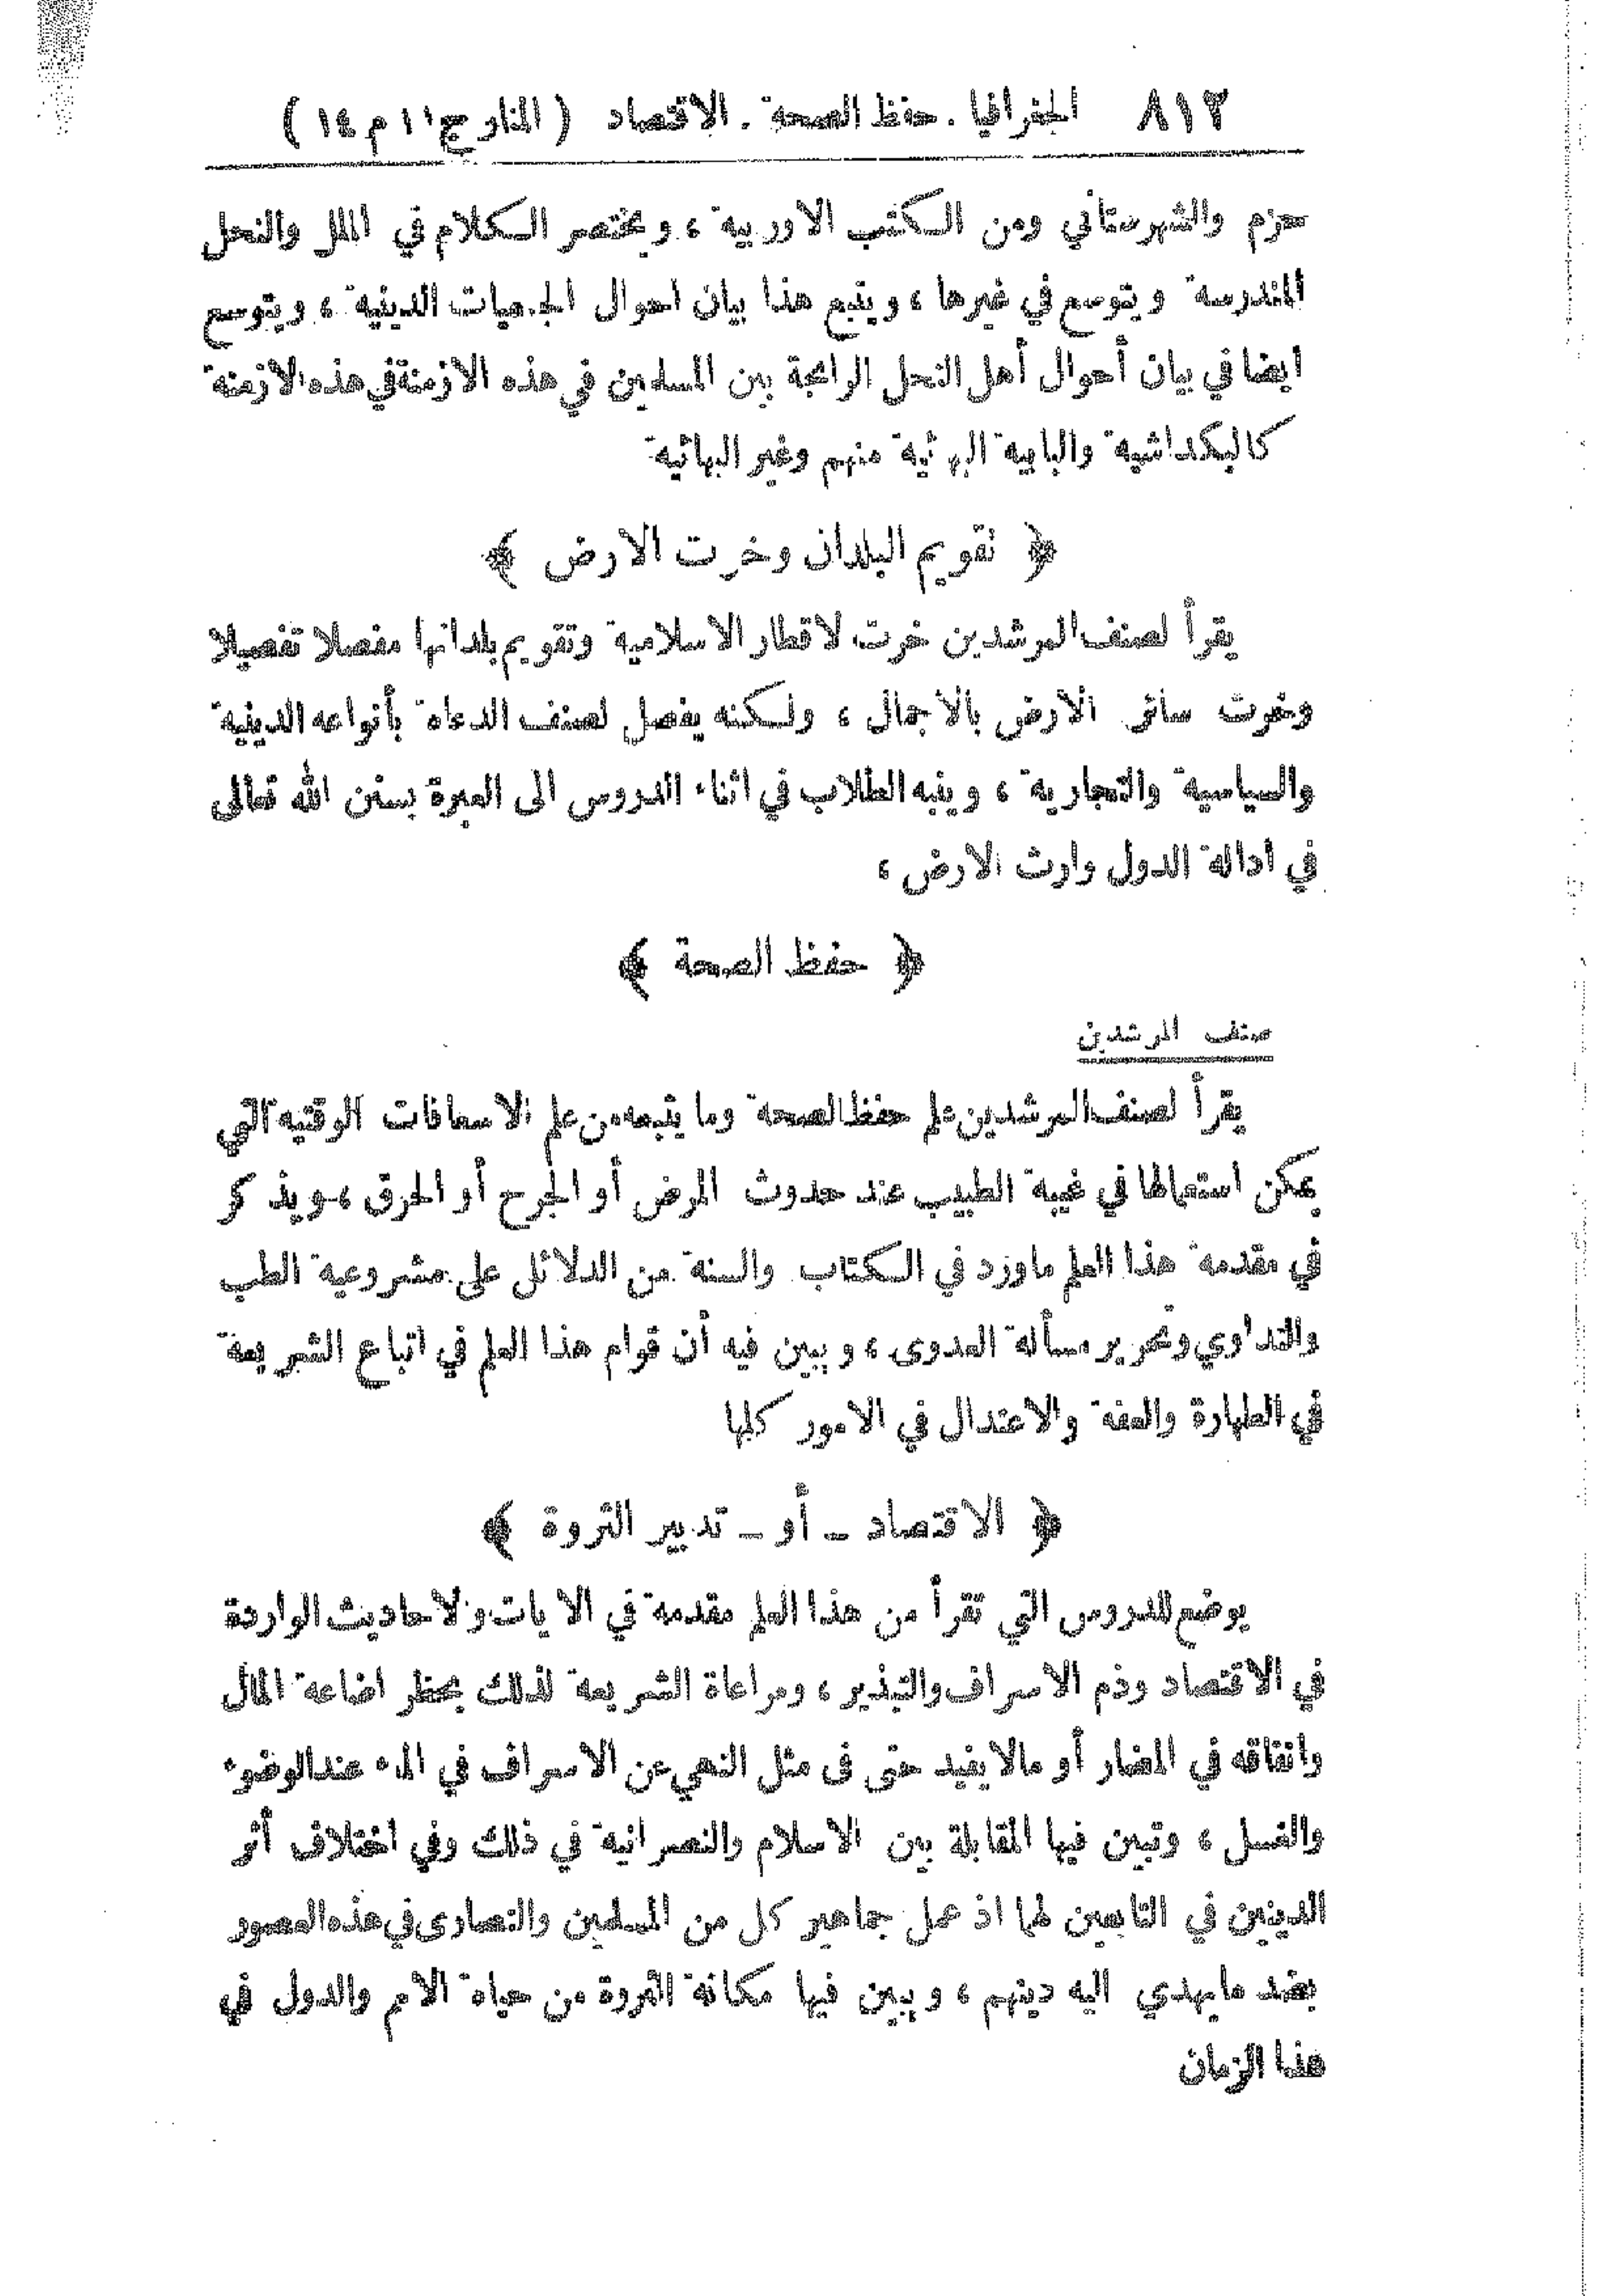 ٨١٢ الجغرافيا . حفظ الصحة . الاقتصاد ( المنار ج ١١ م ١٤ )
حزم والشهرستاني ومن الكتب الاوربية ، ويختصر الكلام في الملل والنحل
المندرسة ويتوسع في غيرها ، ويتبع هذا بيان احوال الجمعيات الدينية ، ويتوسع
ايضا في بيان أحوال أهل النحل الرائجة بين المسلمين في هذه الازمنة في هذه الازمنة
كالبكداشية والبابية البهئية منهم وغير البهائية
﴿ تقويم البلدان وخرت الارض ﴾
يقرأ لصنف المرشدين خرت لاقطار الاسلامية وتقويم بلدانها مفصلا تفصيلا
وخرت سائر الارض بالاجمال ، ولكنه يفصل لصنف الدعاة بأنواعه الدينية
والسياسية والتجارية ، وينبه الطلاب في اثناء الدروس الى العبرة بسنن الله تعالى
في ادالة الدول وارث الارض ،
﴿ حفظ الصحة ﴾
صنف المرشدين
يقرأ لصنف المرشدين علم حفظ الصحة وما يتبعه من علم الاسعافات الوقتية التي
يمكن استعمالها في غيبة الطبيب عند حدوث المرض أو الجرح أو الحرق ، ويذكر
في مقدمة هذا العلم ماورد في الكتاب والسنة من الدلائل على مشروعية الطب
والتداوي وتحرير مسألة العدوى ، ويبين فيه أن قوام هذا العلم في اتباع الشريعة
في الطهارة والعفة والاعتدال في الامور كلها
﴿ الاقتصاد – أو – تدبير الثروة ﴾
يوضع للدروس التي تقرأ من هذا العلم مقدمة في الآيات ولاحاديث الواردة
في الاقتصاد وذم الاسراف والتبذير ، ومراعاة الشريعة لذلك بحظر اضاعة المال
وانفاقه في المضار أو مالا يفيد حتى فى مثل النهي عن الاسراف في الماء عند الوضوء
والغسل ، وتبين فيها المقابلة بين الاسلام والنصرانية في ذلك وفي اختلاف أثر
الدينين في التابعين لهما اذ عمل جماهير كل من المسلمين والنصارى في هذه العصور
بضد مايهدي اليه دينهم ، ويبين فيها مكانة الثروة من حياة الامم والدول في
هذا الزمان